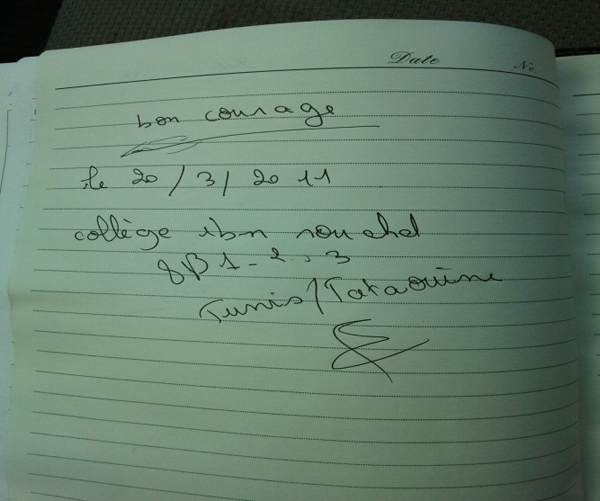 Date No.
bon courage
le 20/3/2011
collège ibn rouchd
8B1-2-3
Tunis/Tataouine